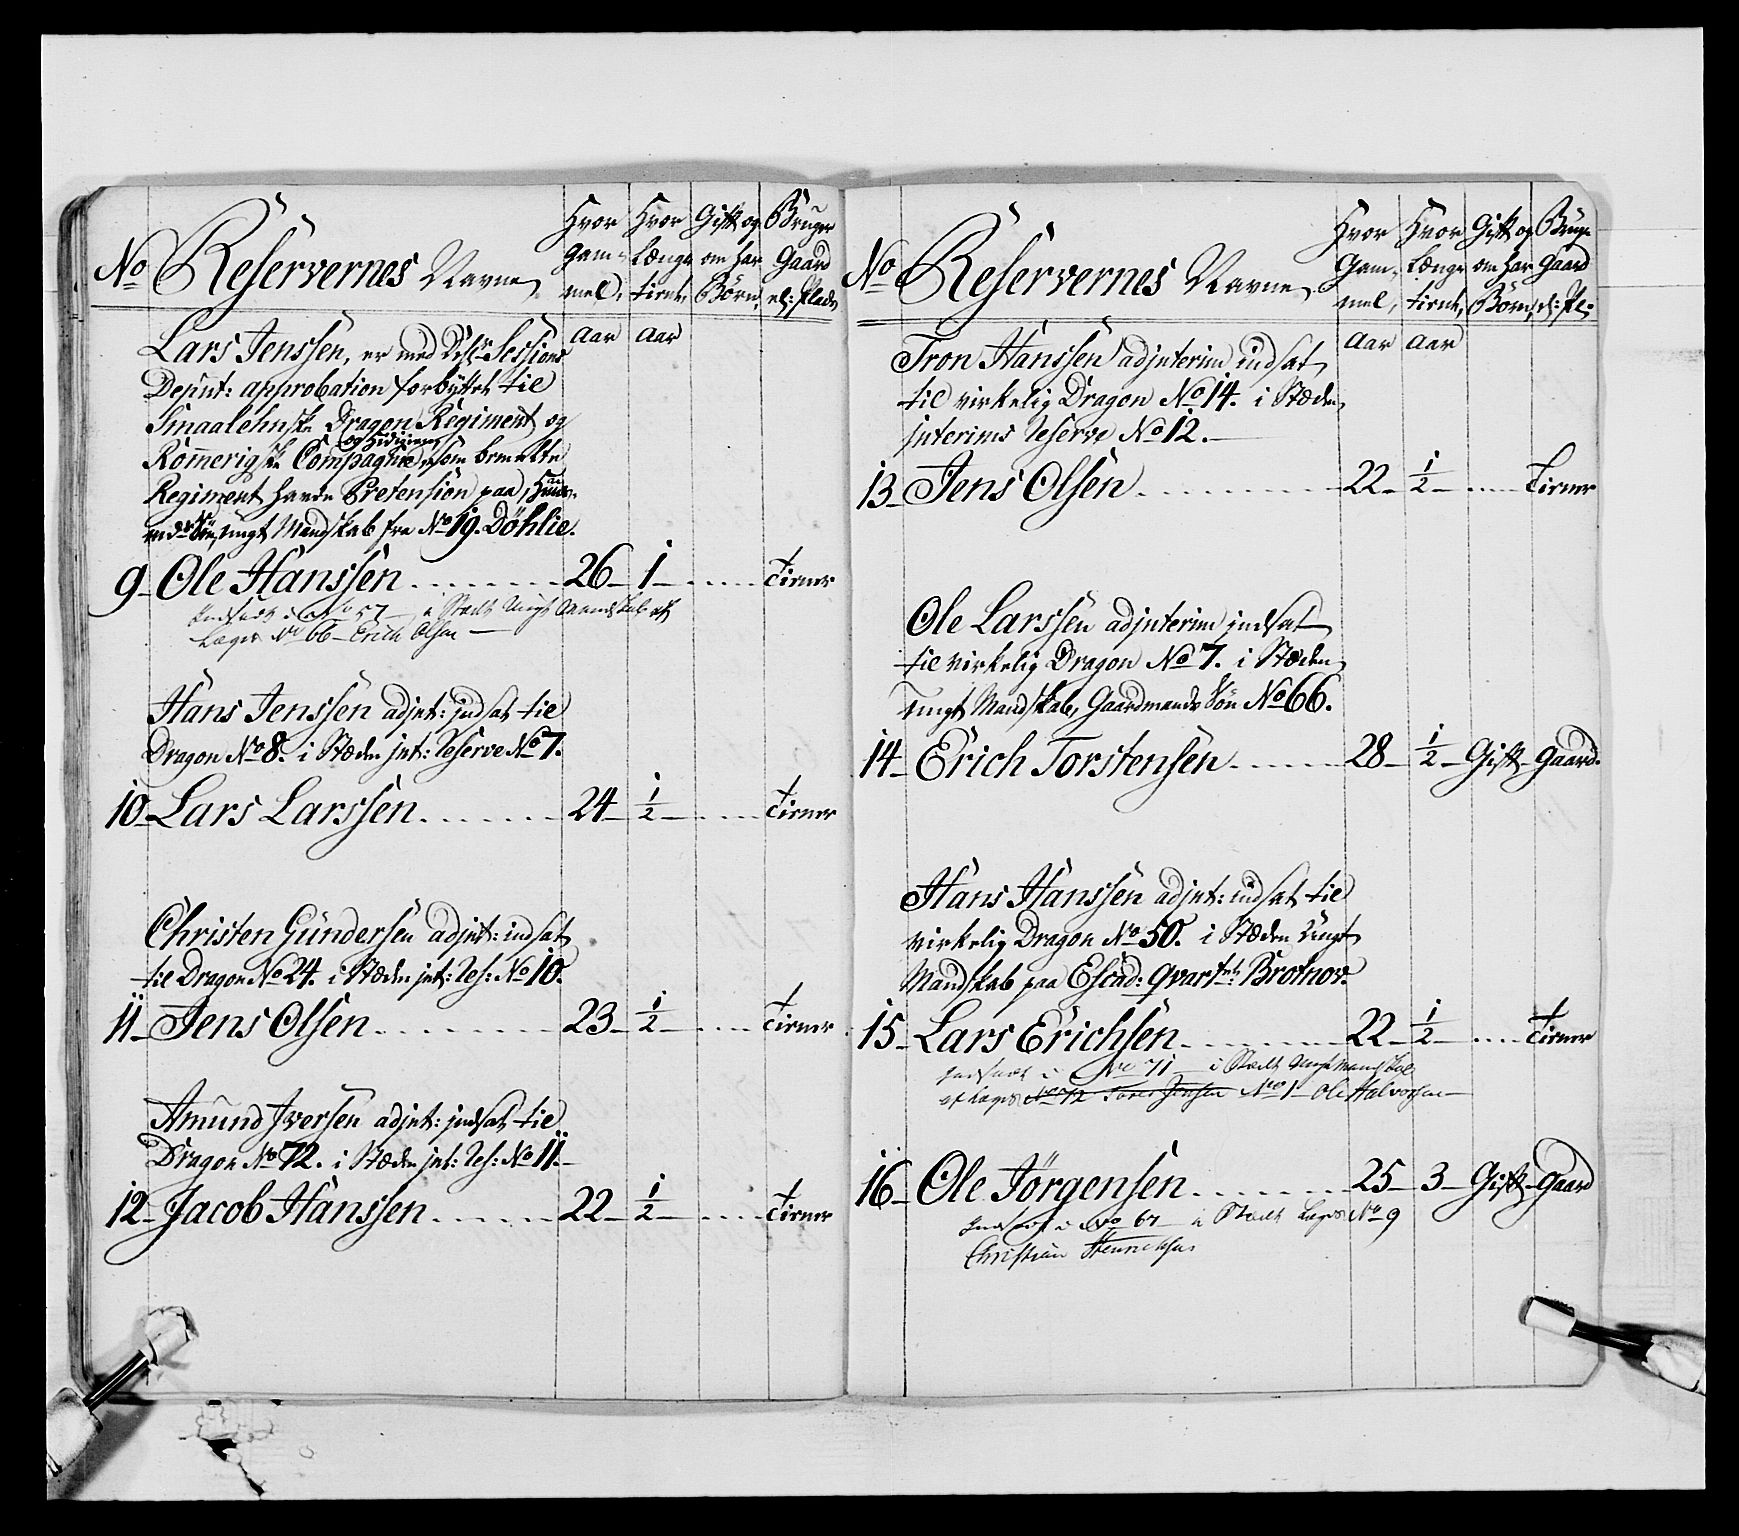 No Reservernes Navne
Hvor gam- mel, Aar
Hvor længe tient, Aar
Gift og om har Børn,
Bruger Gaard el: Plads
Lars Jenssen, er med Sessions
Deput: approbation forbyttet til
Smaalehnske Dragon Regiment og
Rommerigske Compagnie, som bemelte
Regiment havde Pretension paa,
ungt Mandskab fra No 19. Döhlie.
9 Ole Hanssen 26 1 tiener
Indsadt i No 57 i Stædt Ungt Mandskab af
Lægd No 66 Erich Olsen
Hans Jenssen adjnt: indsat til
Dragon No 8. i Stæden jnt: Reserve No 7.
10 Lars Larssen 24 1/2 tiener
Christen Gundersen adjnt: indsat
til Dragon No 24. i Stæden jnt: Res: No 10.
11 Jens Olsen 23 1/2 tiener
Amund Iversen adjnt: indsat til
Dragon No 72. i Stæden jnt: Res: No 11.
12 Jacob Hanssen 22 1/2 tiener
No Reservernes Navne
Hvor Gam- mel, Aar
Hvor længe tient, Aar
Gift og om har Börn,
Bruge Gaard el: Pl:
Tron Hanssen adjnterim indsat
til virkelig Dragon No 14. i Stæden
jnterims Reserve No 12.
13 Jens Olsen 22 1/2 tiener
Ole Larssen adjnterim indsat
til virkelig Dragon No 7. i Stæden
ungt Mandskab, Gaardmands Sön No 66.
14 Erich Torstensen 28 1/2 Gift gaard.
Hans Hanssen adjnt: indsat til
virkelig Dragon No 50. i Stæden Ungt
Mandskab paa Escad: qvartrt: Brotnov.
15 Lars Erichsen 22 1/2 tiener
Indsadt i No 71 i Stædt Ungt Mandskab
af Lægd No 72 Tores Jensen No 1 Ole Halvorsen
16 Ole Jörgensen 25 3 Gift gaard
Indsadt i No 67 i Stædt Lægd No 9
Christian Henrichsen